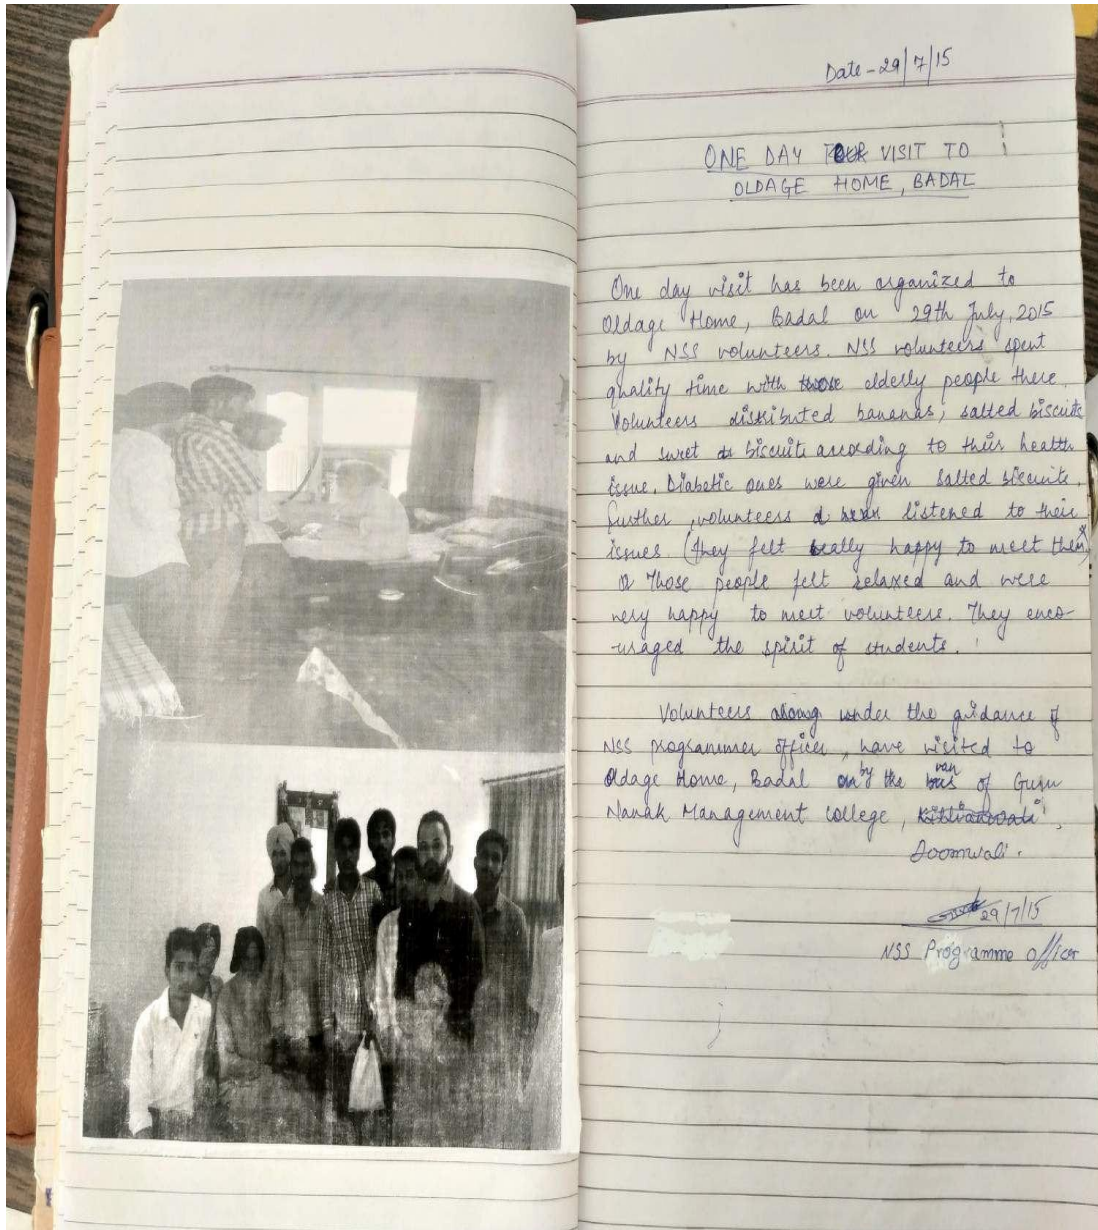 Date - 29/7/15
ONE DAY TOUR VISIT TO
OLDAGE HOME, BADAL
One day visit has been organized to
Oldage Home, Badal on 29th July, 2015
by NSS volunteers. NSS volunteers spent
quality time with those elderly people there.
Volunteers distributed bananas, salted biscuits
and sweet biscuits according to their health
issue. Diabetic ones were given salted biscuits.
Further, volunteers listened to their
issues. (They felt really happy to meet them)
Those people felt relaxed and were
very happy to meet volunteers. They enco-
-uraged the spirit of students.
Volunteers along under the guidance of
NSS programmer officer, have visited to
Oldage Home, Badal on by the bus van of Guru
Nanak Management College,
Doomwali.
29/7/15
NSS Programme Officer